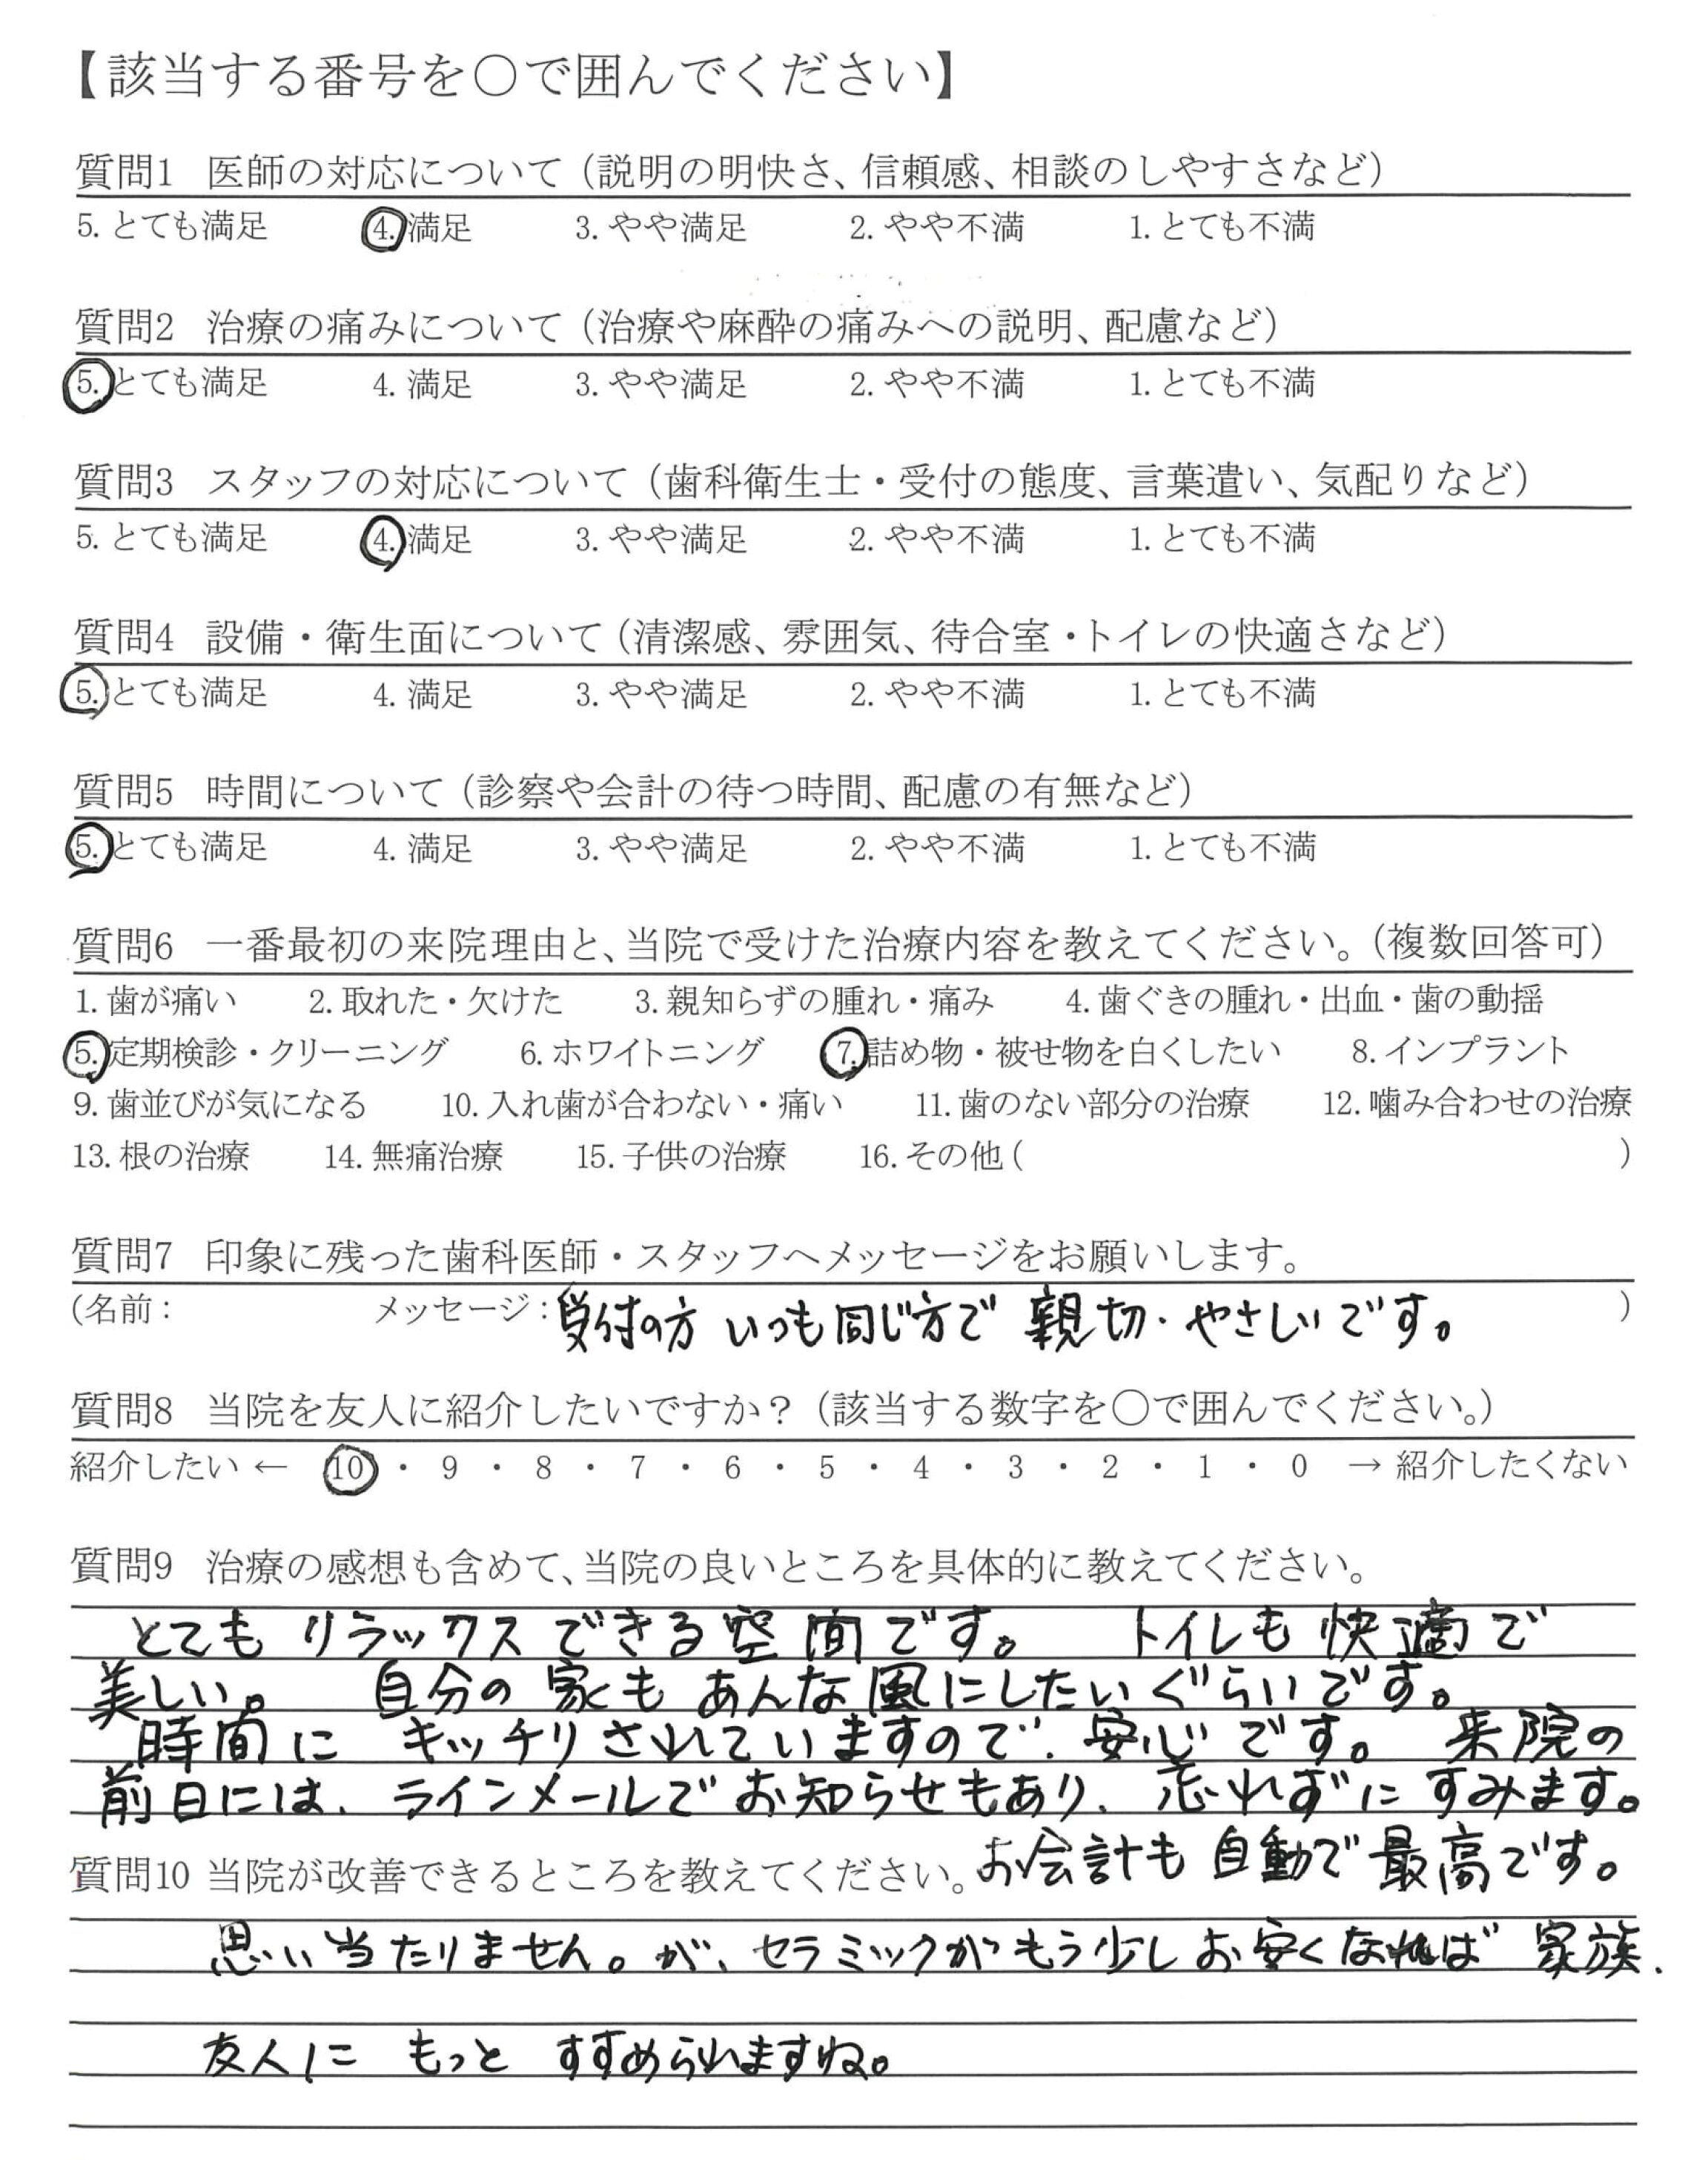 【該当する番号を〇で囲んでください】
質問1 医師の対応について（説明の明快さ、信頼感、相談のしやすさなど）
5. とても満足 4. 満足 3. やや満足 2. やや不満 1. とても不満
質問2 治療の痛みについて（治療や麻酔の痛みへの説明、配慮など）
5. とても満足 4. 満足 3. やや満足 2. やや不満 1. とても不満
質問3 スタッフの対応について（歯科衛生士・受付の態度、言葉遣い、気配りなど）
5. とても満足 4. 満足 3. やや満足 2. やや不満 1. とても不満
質問4 設備・衛生面について（清潔感、雰囲気、待合室・トイレの快適さなど）
5. とても満足 4. 満足 3. やや満足 2. やや不満 1. とても不満
質問5 時間について（診察や会計の待つ時間、配慮の有無など）
5. とても満足 4. 満足 3. やや満足 2. やや不満 1. とても不満
質問6 一番最初の来院理由と、当院で受けた治療内容を教えてください。（複数回答可）
1. 歯が痛い 2. 取れた・欠けた 3. 親知らずの腫れ・痛み 4. 歯ぐきの腫れ・出血・歯の動揺
5. 定期検診・クリーニング 6. ホワイトニング 7. 詰め物・被せ物を白くしたい 8. インプラント
9. 歯並びが気になる 10. 入れ歯が合わない・痛い 11. 歯のない部分の治療 12. 噛み合わせの治療
13. 根の治療 14. 無痛治療 15. 子供の治療 16. その他（ ）
質問7 印象に残った歯科医師・スタッフへメッセージをお願いします。
（名前： メッセージ：受付の方 いつも同じ方で 親切、やさしいです。 ）
質問8 当院を友人に紹介したいですか？（該当する数字を〇で囲んでください。）
紹介したい ← 10 ・ 9 ・ 8 ・ 7 ・ 6 ・ 5 ・ 4 ・ 3 ・ 2 ・ 1 ・ 0 → 紹介したくない
質問9 治療の感想も含めて、当院の良いところを具体的に教えてください。
とても リラックス できる 空間です。 トイレも 快適で
美しい。 自分の 家も あんな風にしたいぐらいです。
時間に キッチリ されていますので、安心です。 来院の
前日には、ラインメールで お知らせもあり、忘れずに すみます。
お会計も 自動で 最高です。
質問10 当院が改善できるところを教えてください。
思い当たりません。が、セラミックが もう少し お安くなれば 家族、
友人に もっと すすめられますね。